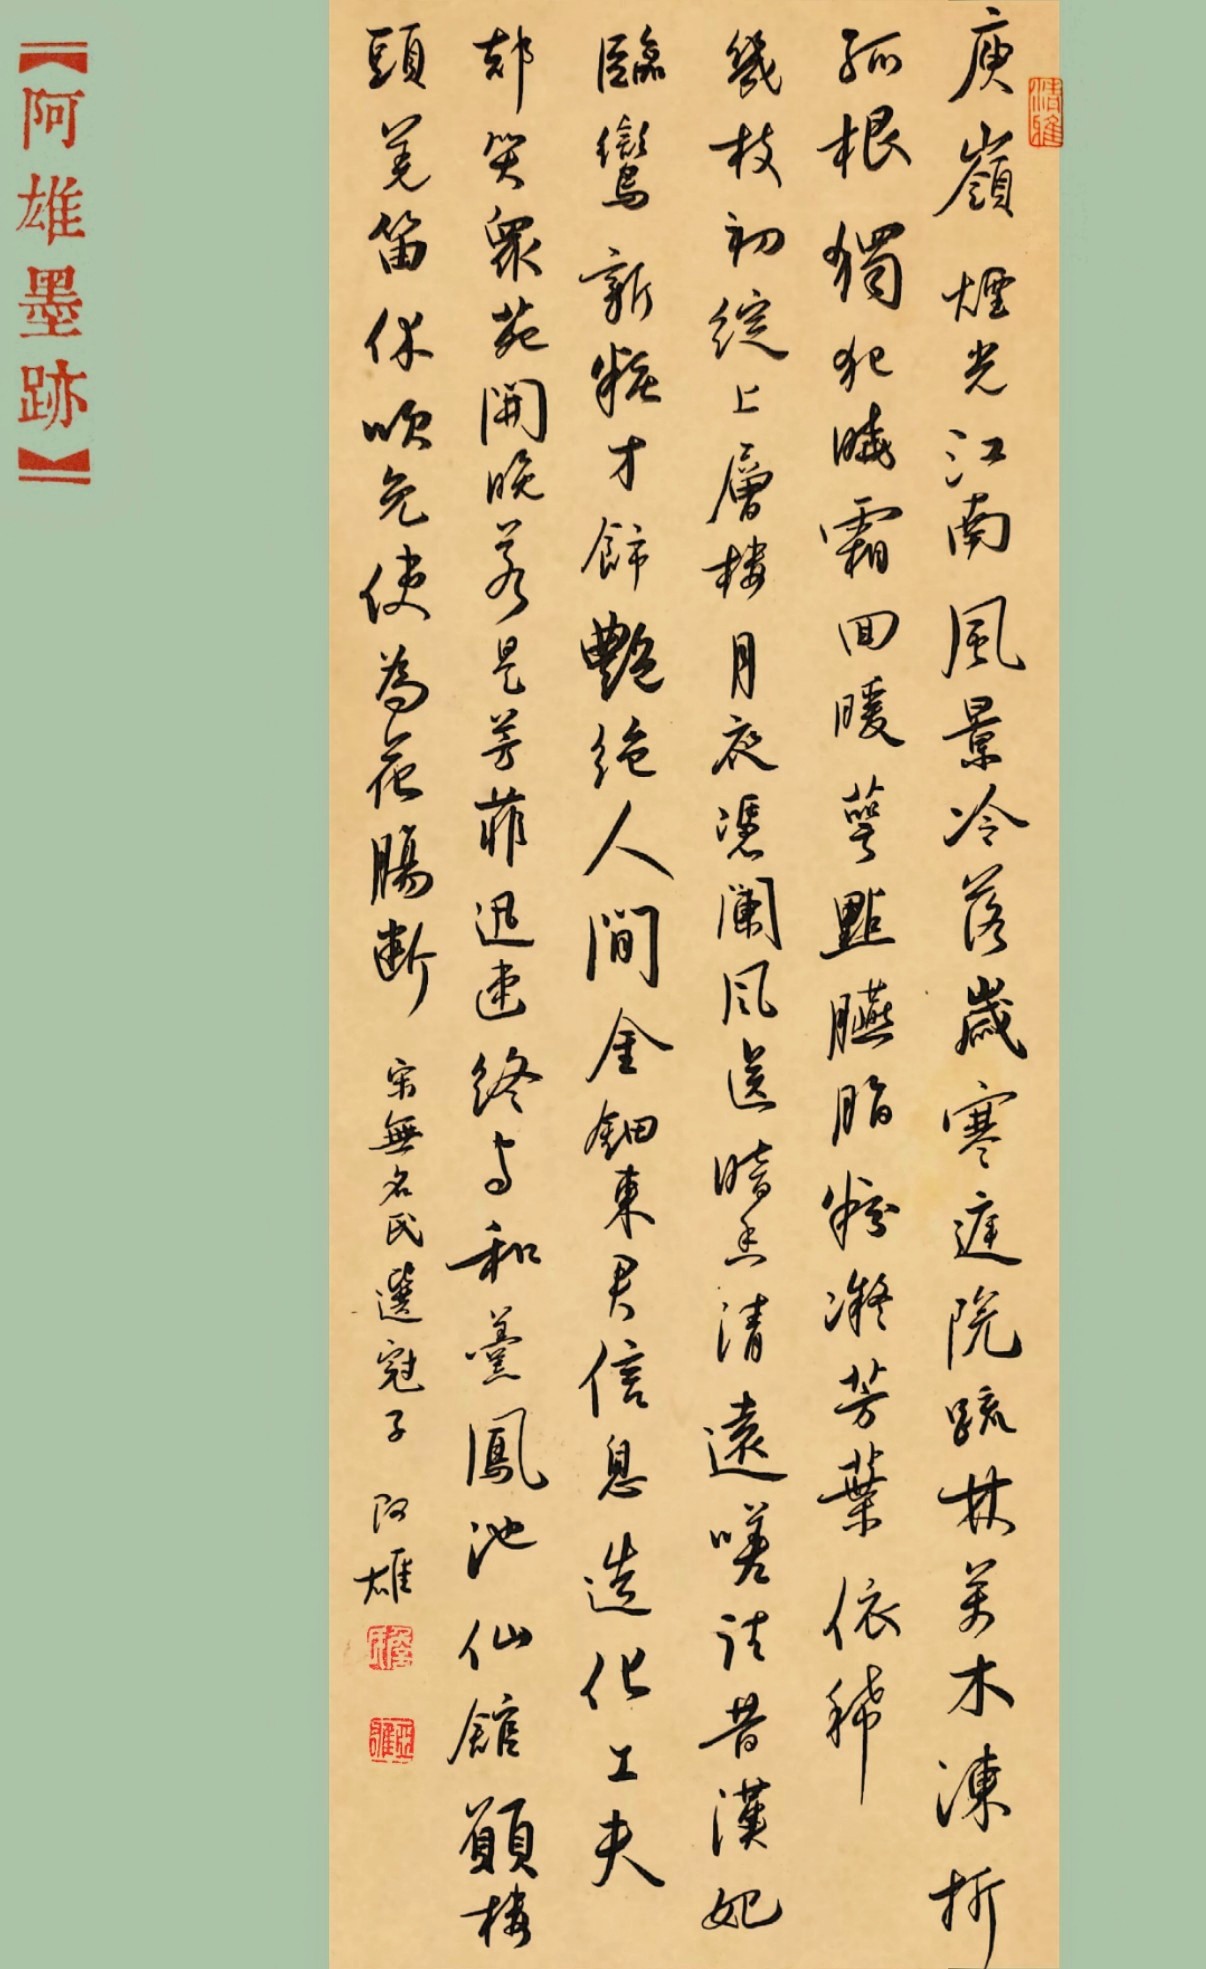 庾嶺煙光江南風景冷落歲寒庭院疏林萬木凍折
孤根獨犯曉霜回暖萼點臙脂粉凝芳葉依稀
幾枝初綻上層樓月夜憑闌風送暗香清遠嗟試昔漢妃
臨鸞新粧才飾艷絕人間金鈿東君信息造化工夫
都笑眾苑開晚若是芳菲迅速終當和羹鳳池仙館願樓
頭羌笛休吹免使為花腸斷 宋無名氏選冠子 阿雄
【阿雄墨跡】
清雅